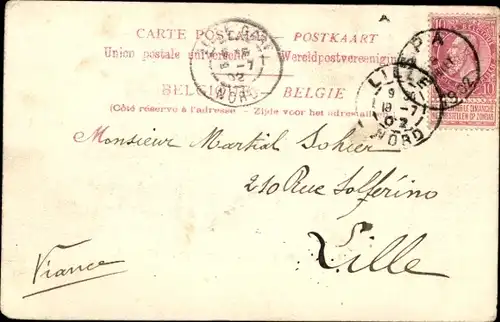 CARTE POSTALE POSTKAART
Union postale universelle Wereldpostvereeniging
BELGIQUE BELGIE
(Côté réservé à l'adresse Zijde voor het adres
Monsieur Martial Sohier
210 Rue Solférino
Lille
France
LILLE
9
18-7
02
NORD
18-7
02
NORD
PA
1902
10 10